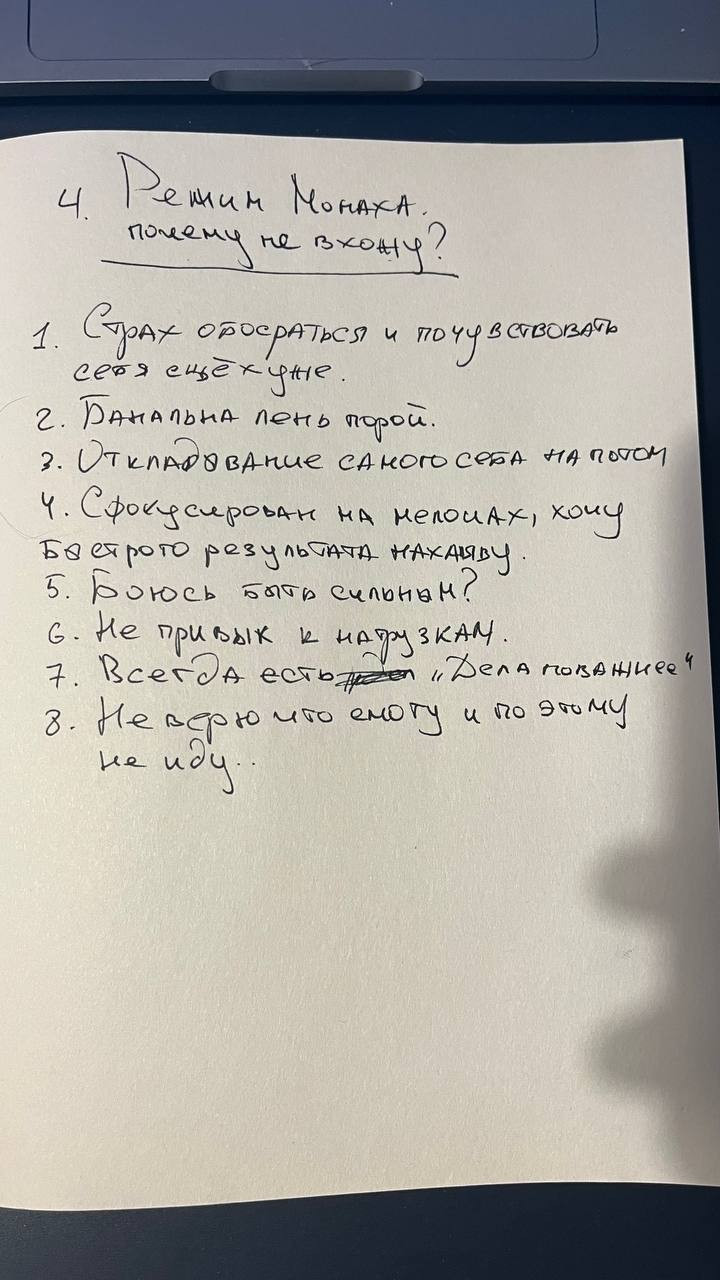 4. Режим Монаха.
почему не вхожу?
1. Страх обосраться и почувствовать
себя ещё хуже.
2. Банальна лень порой.
3. Откладование самого себя на потом
4. Сфокусирован на мелочах, хочу
быстрого результата нахаляву.
5. Боюсь быть сильным?
6. Не привык к нагрузкам.
7. Всегда есть „Дела поважнее"
8. Не верю что смогу и по этому
не иду..